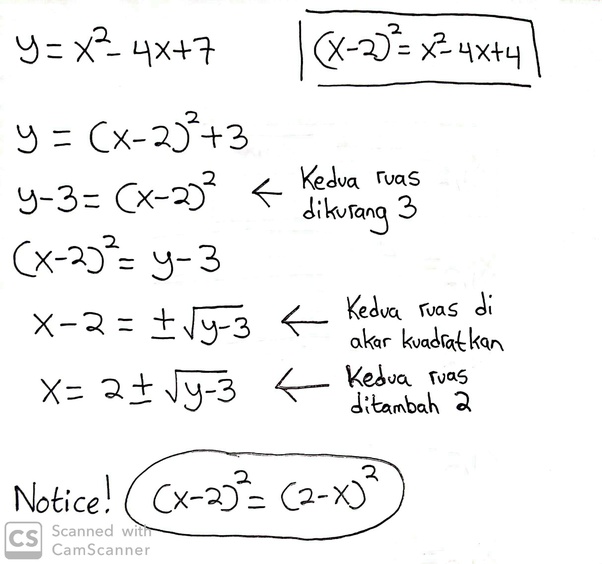 y = x² - 4x + 7
(x-2)² = x² - 4x + 4
y = (x-2)² + 3
y - 3 = (x-2)² ← Kedua ruas
dikurang 3
(x-2)² = y - 3
x - 2 = ±√(y-3) ← Kedua ruas di
akar kuadratkan
x = 2 ± √(y-3) ← Kedua ruas
ditambah 2
Notice! (x-2)² = (2-x)²
CS Scanned with
CamScanner